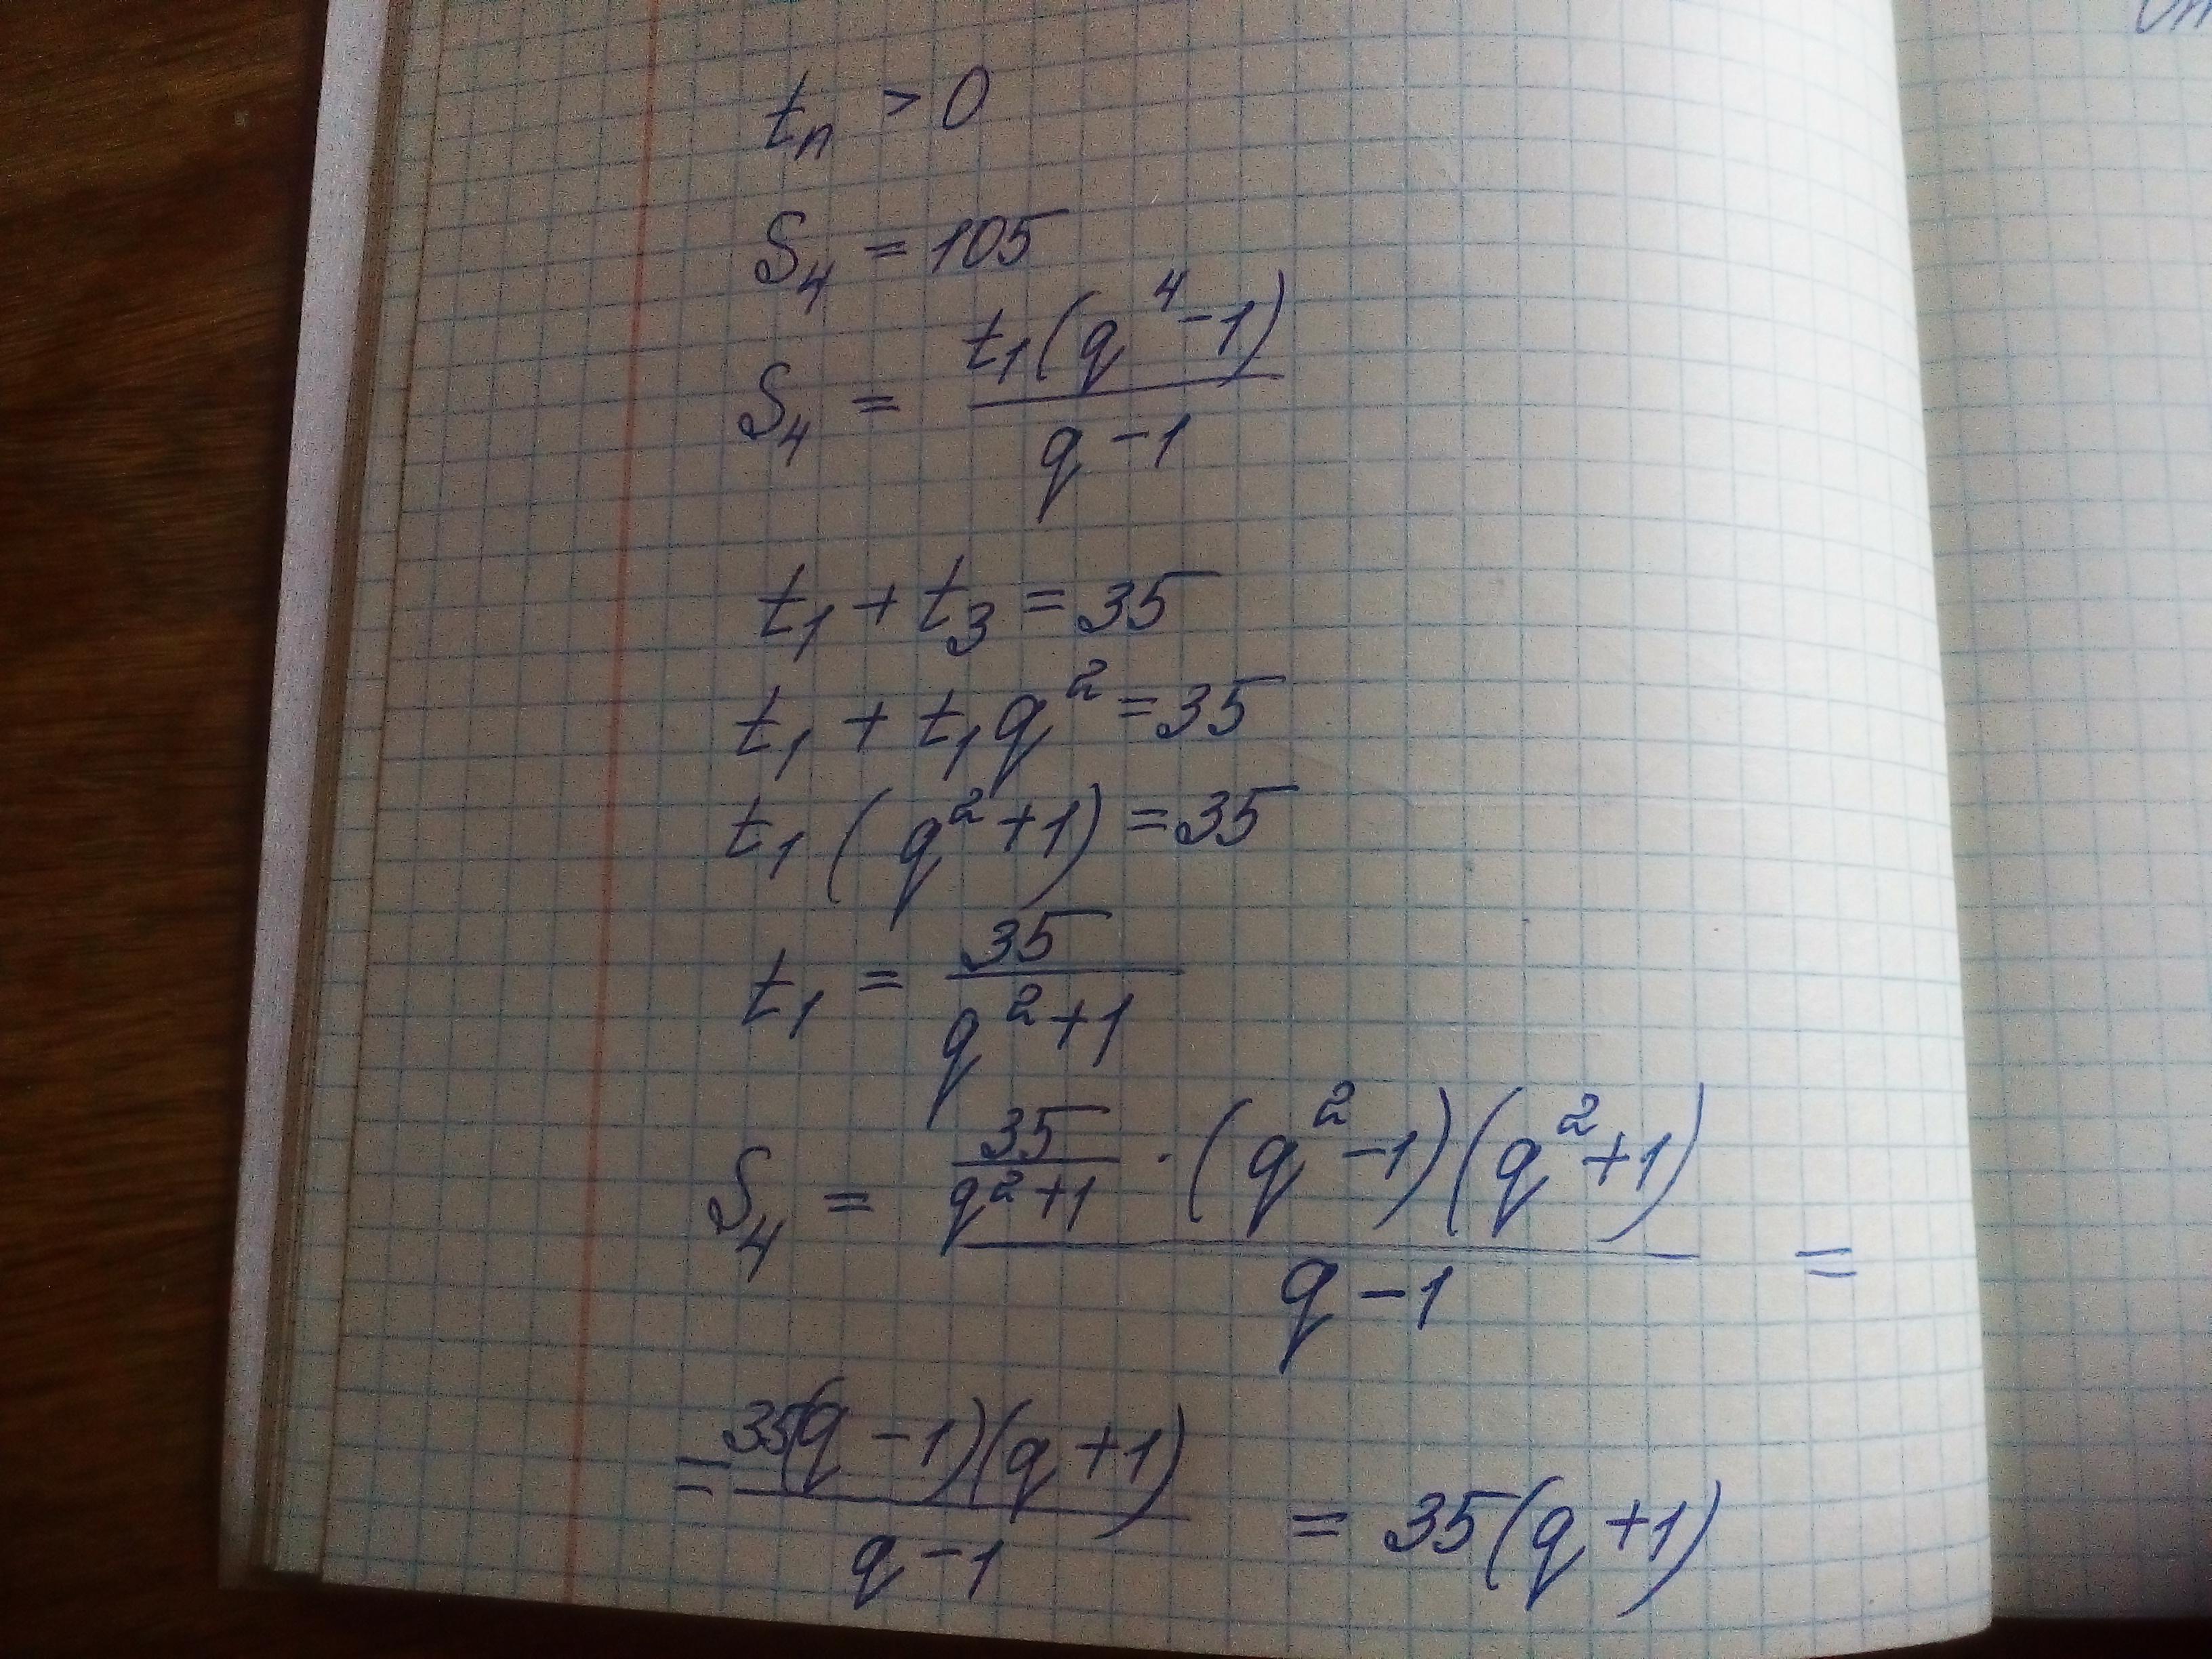 tₙ > 0
S₄ = 105
S₄ = t₁(q⁴-1) / q-1
t₁ + t₃ = 35
t₁ + t₁q² = 35
t₁(q²+1) = 35
t₁ = 35 / q²+1
S₄ = 35 / q²+1 · (q²-1)(q²+1) / q-1 =
= 35(q-1)(q+1) / q-1 = 35(q+1)